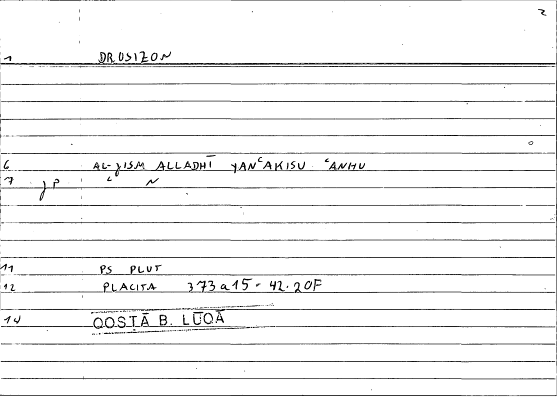 2
1 DROSIZON
6 AL-JISM ALLADHĪ YAN ͑AKISU ͑ANHU
7
11 PS PLUT
12 PLACITA 373a15 - 42.20F
14 QOSṬĀ B. LŪQĀ